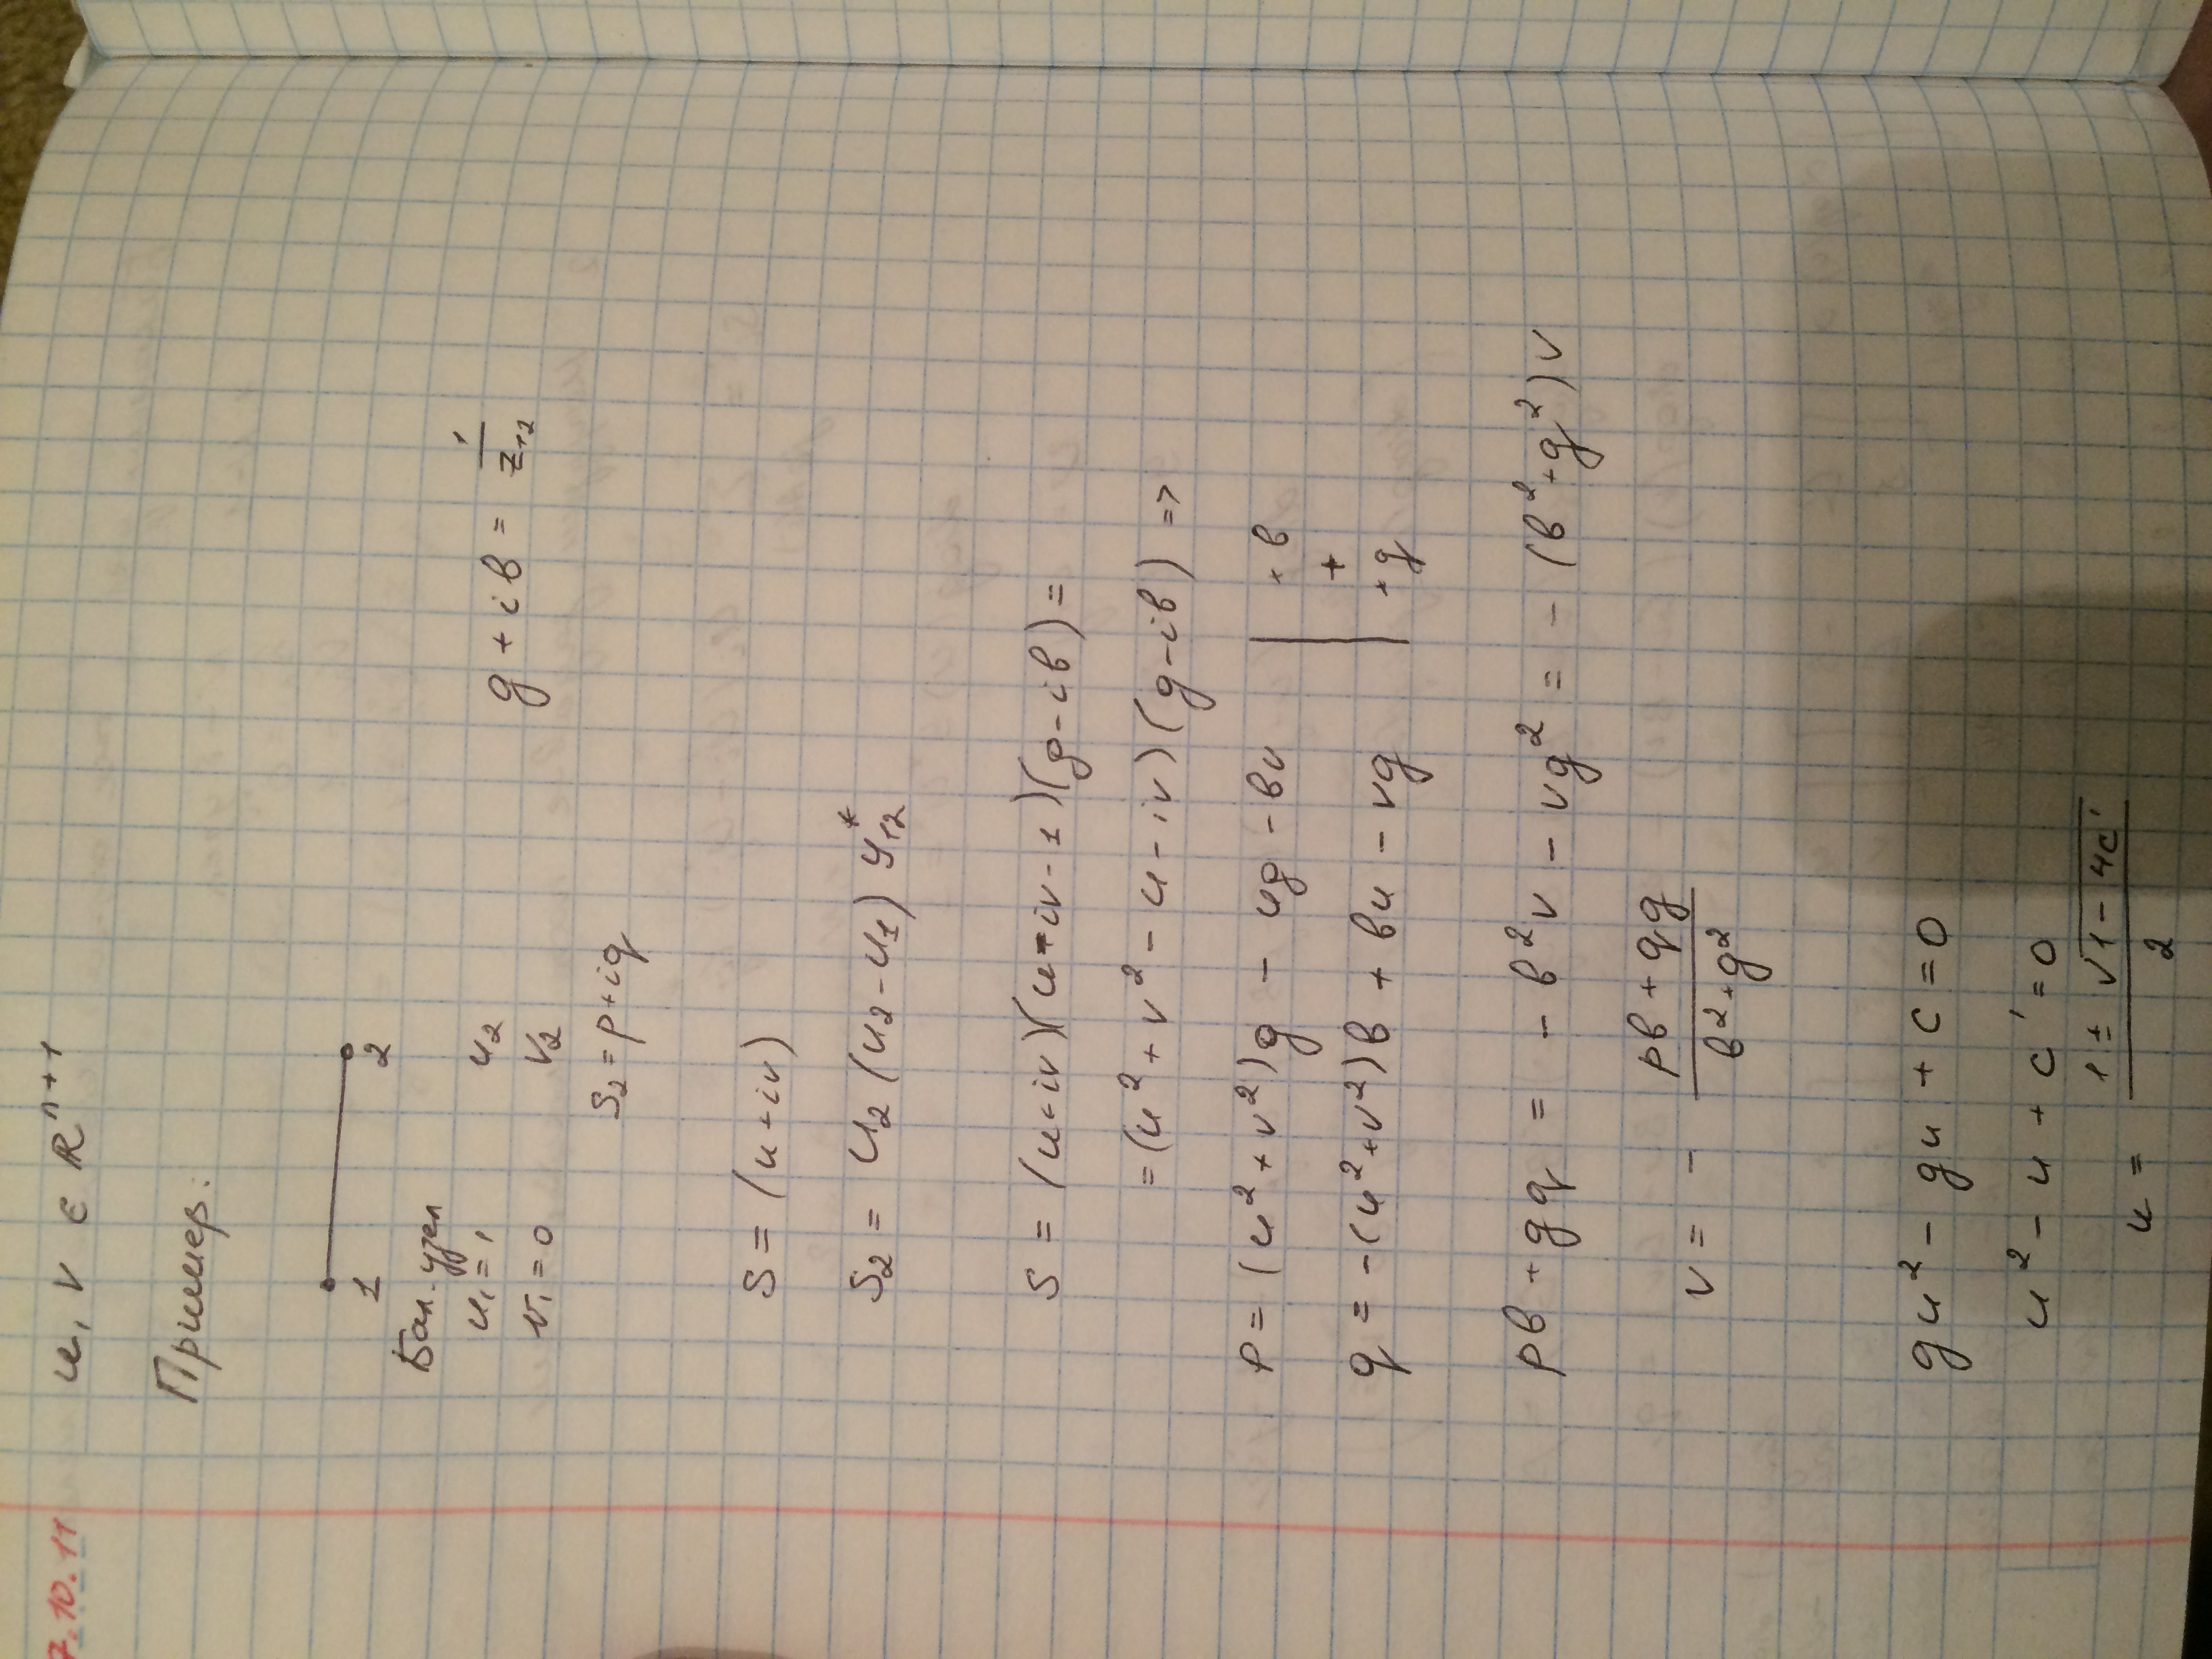 7.10.11
u, v ∈ ℝⁿ⁺¹
Пример:
1 2
Бал. узел
u₁ = 1 u₂
v₁ = 0 v₂
g + iв = 1/z₁₂
S₂ = p + iq
S = (u + iv)
S₂ = U₂ (U₂ - U₁) Y₁₂*
S = (u + iv)(u - iv - 1)(g - iв) =
= (u² + v² - u - iv)(g - iв) =>
P = (u² + v²)g - ug - вv | · в
+
q = -(u² + v²)в + вu - vg | · g
pв + gq = - в²v - vg² = - (в² + g²)v
v = - (pв + qg)/(в² + g²)
gu² - gu + c = 0
u² - u + c' = 0
u = (1 ± √(1 - 4c'))/2